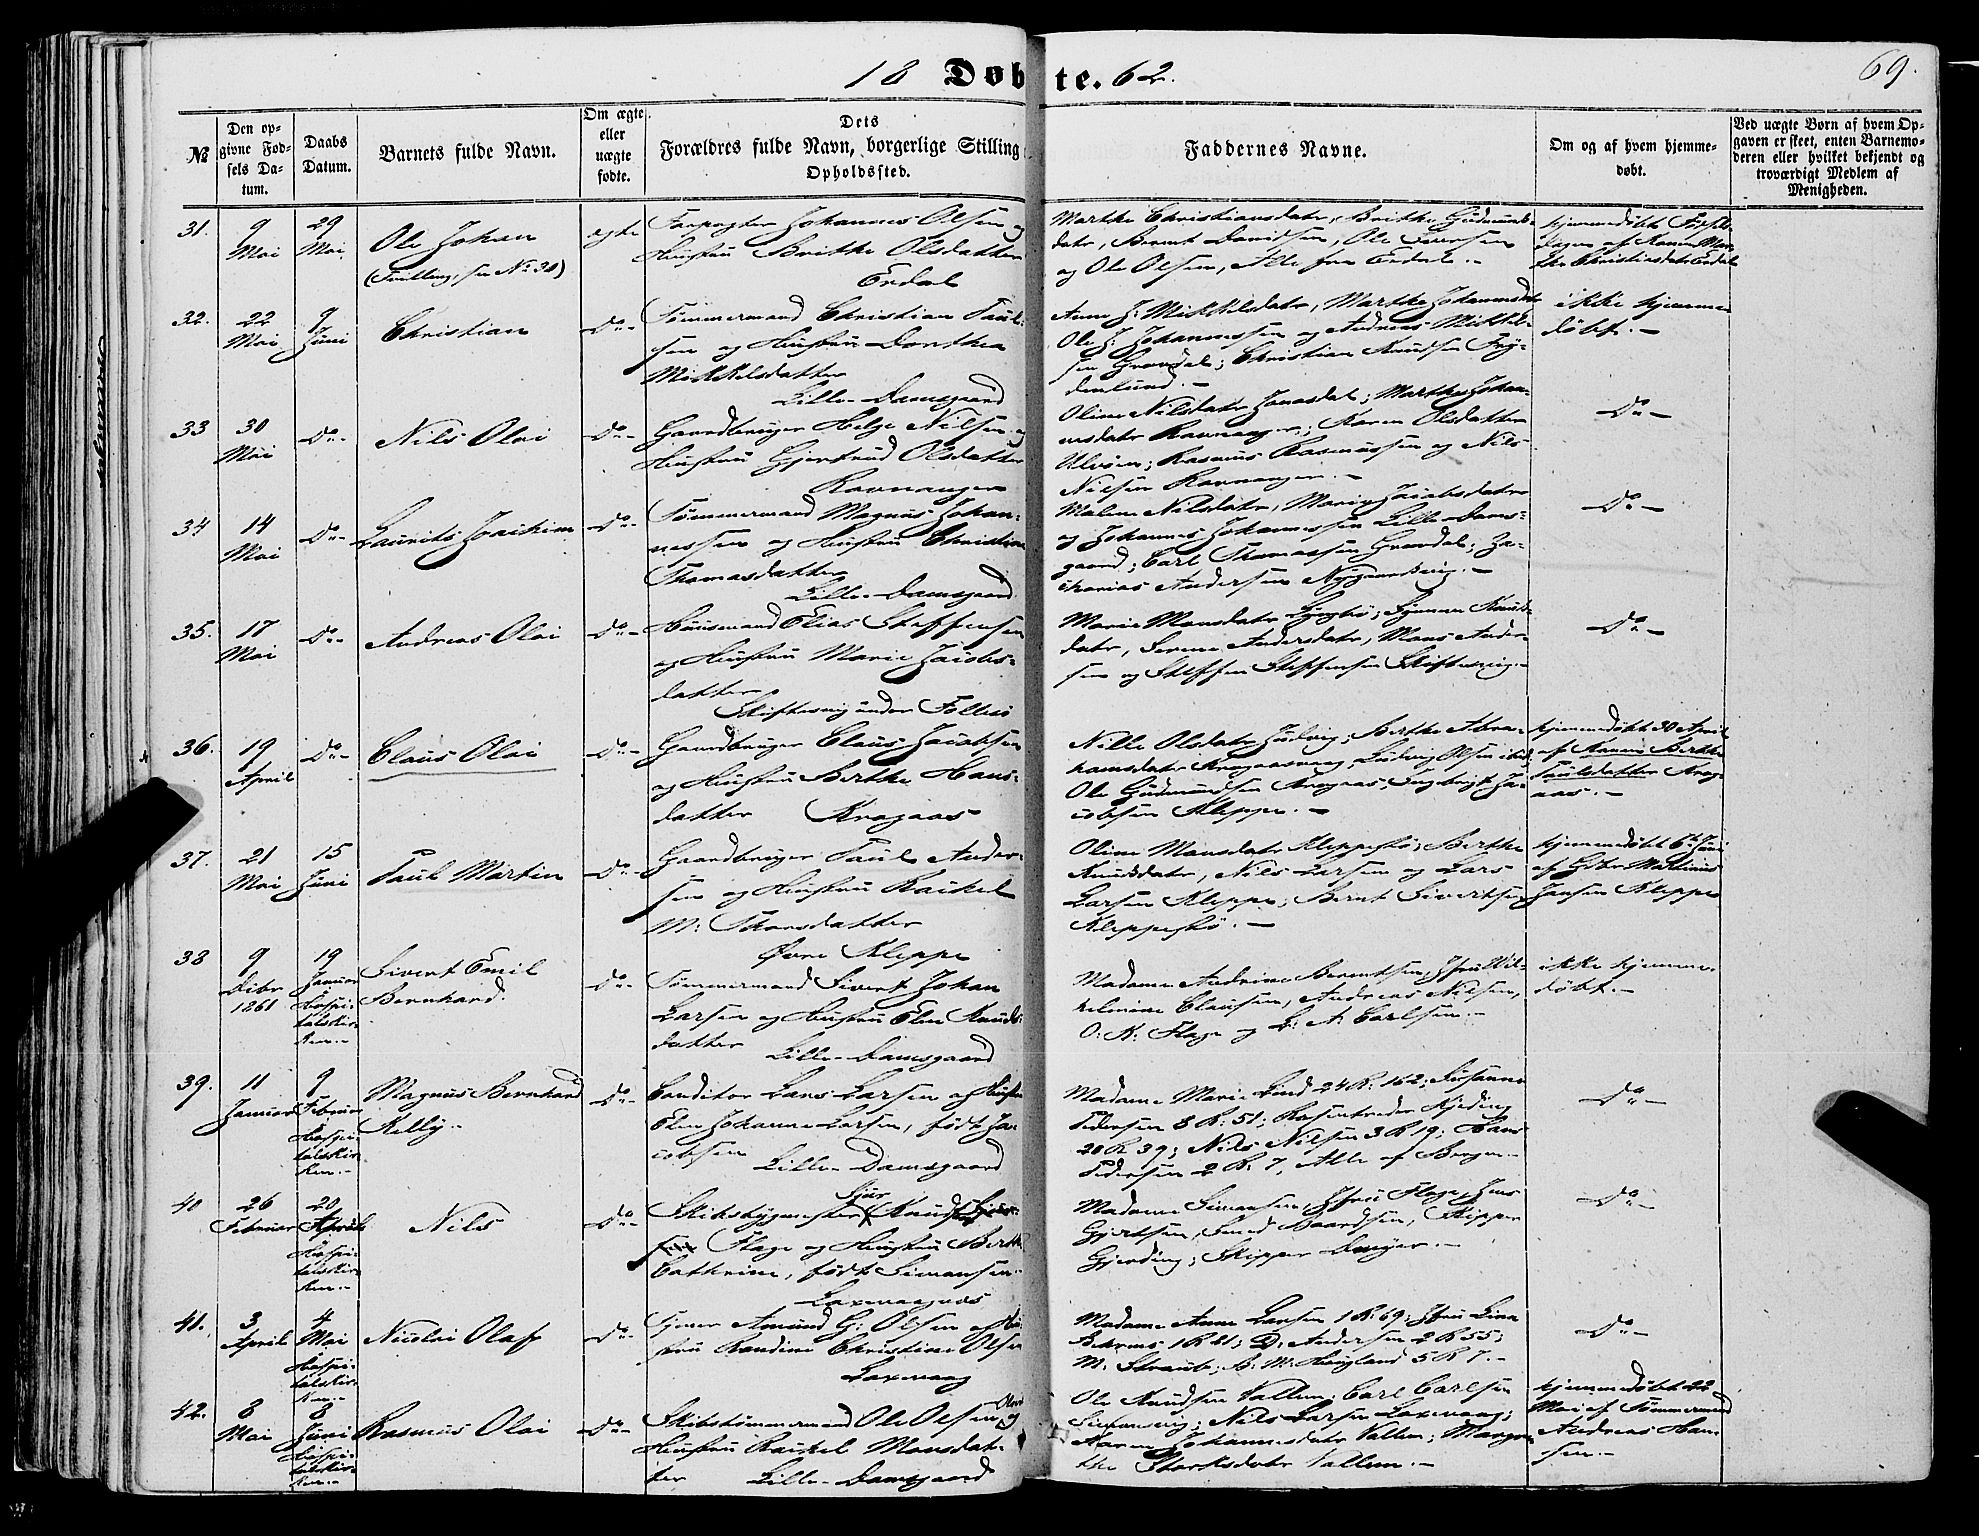 18 Døbte. 62.
69.
№
Den opgivne Fødsels Datum.
Daabs Datum.
Barnets fulde Navn.
Om ægte eller uægte fødte.
Dets Forældres fulde Navn, borgerlige Stilling
Opholdssted.
Faddernes Navne.
Om og af hvem hjemmedøbt.
Ved uægte Børn af hvem Opgaven er skeet, enten Barnemoderen eller hvilket bekjendt og troværdigt Medlem af Menigheden.
31. 9 Mai 29 Mai Ole Johan
(Tvilling, see No 30)
ægte
Forpagter Johannes Olsen og
Hustru Brithe Olsdatter
Erdal
Marthe Christiansdatr, Brithe Gudmunds-
datr, Bernt Davidsen, Ole Iversen
og Ole Olsen, Alle fra Erdal.
32. 22 Mai 9 Juni Christian Do
Tømmermand Christian Paul-
sen og Hustru Dorthea
Mikkelsdatter
Lille-Damsgaard
Anne J. Mikkelsdatr, Marthe Johannesdatr
Ole J. Johannessen og Andreas Mikkel-
sen Gravdal; Christian Knudsen Fry-
denlund.
ikke hjemme
døbt.
33 30 Mai Do Nils Olai Do
Gaardbruger Helge Nilsen og
Hustru Gjertrud Olsdatter
Ravnanger
Oline Nilsdatr Janasdal; Marthe Johan-
nesdatr Ravnanger; Karen Olsdatter
Ulvøen; Rasmus Rasmussen og Nils
Nilsen Ravnanger.
Do
34 14 Mai Do Laurits Joachim Do
Tømmermand Magnus Johan-
nessen og Hustru Christine
Thomasdatter
Lille-Damsgaard
Malene Nilsdatr, Marie Jacobsdatr
og Johannes Johannessen Lille Dams-
gaard; Carl Thomassen Gravdal; Za-
charias Andersen Nygaardsvig.
Do
35. 17 Mai Do Andreas Olai Do
Huusmand Elias Steffensen
og Hustru Marie Jacobs-
datter
Skiftesvig under Follesø
Marie Monsdatr Lyngbø; Synneve Knuds-
datr, Serene Andersdatr, Mons Ander-
sen og Steffen Steffensen Skiftesvig.
Do
36. 19 April Do Claus Olai Do
Gaardbruger Claus Jacobsen
og Hustru Berthe Hans-
datter Kragaas
Nille Olsdatr Judvig; Berthe Abra-
hamsdatr Kragaasvaag, Ludvig Olsen ibid,
Ole Gudmundsen Kragaas, Ingbrigt Ja-
cobsen Kleppe.
hjemmedøbt 30 April
af Konen Berthe
Paulsdatter Krag-
aas.
37. 21 Mai 15 Juni Paul Martin Do
Gaardbruger Paul Ander-
sen og Hustru Rachel
M: Thorsdatter
Øvre Kleppe
Oline Monsdatr Kleppestø; Berthe
Knudsdatr, Nils Larsen og Lars
Larsen Kleppe; Bernt Sivertsen
Kleppestø.
hjemmedøbt 6te Juni
af Gbr Mathias
Jansen Kleppe
38 9 Decbr 1861 19 Januar Hospi-
talskir-
ken.
Sivert Emil
Bernhard.
Do
Tømmermand Sivert Johan
Larsen og Hustru Elen Knuds-
datter Lille-Damsgaard
Madame Andrine Berentsen, Jfru Wil-
helmine Clausen, Andreas Nilsen,
O: K: Flage og L: A: Carlsen.
ikke hjemme-
døbt.
39. 11 Januar 9 Februar Hospi-
talskir-
ken.
Magnus Bernhard
Kelly.
Do
Conditor Lars Larsen og Hustru
Elen Johanne Larsen, født Ja-
cobsen Lille-Damsgaard
Madame Marie Lind 24 R: 162; Susanne
Pedersen 8 R: 51; Gjeding
20 R. 39; Nils Nilsen 3 R 19; Hans
Pedersen 2 R: 7, Alle af Bergen
Do
40 26 Februar 20 April Hospi-
talskir-
ken.
Nils Do
Skibsbygmester Sjur Knudsen
Flage og Hustru Berthe
Cathrine, født Simonsen
Laxevaagnæs
Madame Simonsen, Jfru Flage, Jens
Gjertsen, Smed Baardsen, Skipper
Gjerding; Skipper Dreyer.
Do
41. 3 April 4 Mai Hospi-
talskir-
ken.
Nicolai Olaf Do
Amund G: Olsen og Hu-
stru Randine Christine Olsen
Laxevaag
Madame Anne Larsen 1 R: 69; Jfru Lina
Behrens 1 R 81; D: Andersen 2 R 55;
M: Straub; B: M: Haugland 5 R 7.
Do
42. 8 Mai 8 Juni Hospi-
talskir-
ken.
Rasmus Olai Do
Skibstømmermand Ole Olsen og
Hustru Rachel Monsdat-
ter Lille-Damsgaard
Ole Knudsen Vallem; Carl Carlsen
Simonsvig; Nils Larsen Laxevaag;
Karen Johannesdatr Vallem; Margre-
the Vallem.
hjemmedøbt 22
Mai af Tømmermand
Andreas Han-
sen.